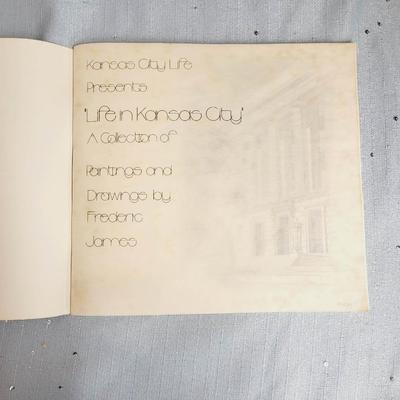 Kansas City Life
Presents
"Life in Kansas City"
A Collection of
Paintings and
Drawings by
Frederic
James